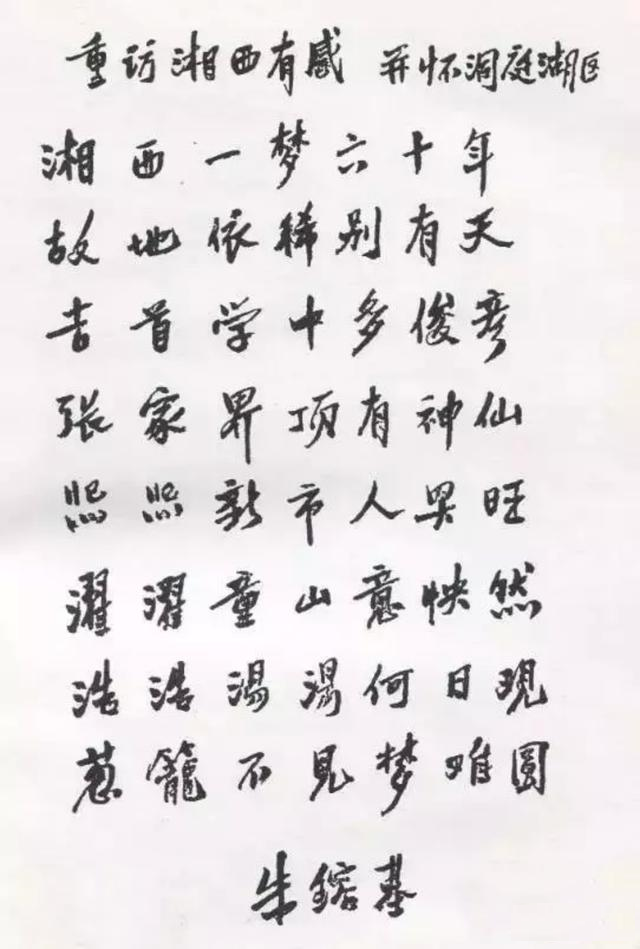 重访湘西有感 并怀洞庭湖区
湘西一梦六十年
故地依稀别有天
吉首学中多俊彦
张家界顶有神仙
熙熙新市人兴旺
濯濯童山意怏然
浩浩汤汤何日现
葱茏不见梦难圆
朱镕基